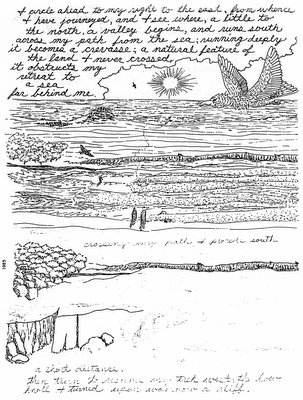 I circle ahead to my right to the east, from whence
I have journeyed, and I see where, a little to
the north, a valley begins, and runs south
across my path from the sea; running deeply
it becomes a crevasse; a natural feature of
the land I never crossed.
it obstructs my
retreat to
a sea
far behind me.
crossing my path I pivot south
1985
a short distance.
then turn to resume my trek west; the low
knoll I turned upon was now a cliff.